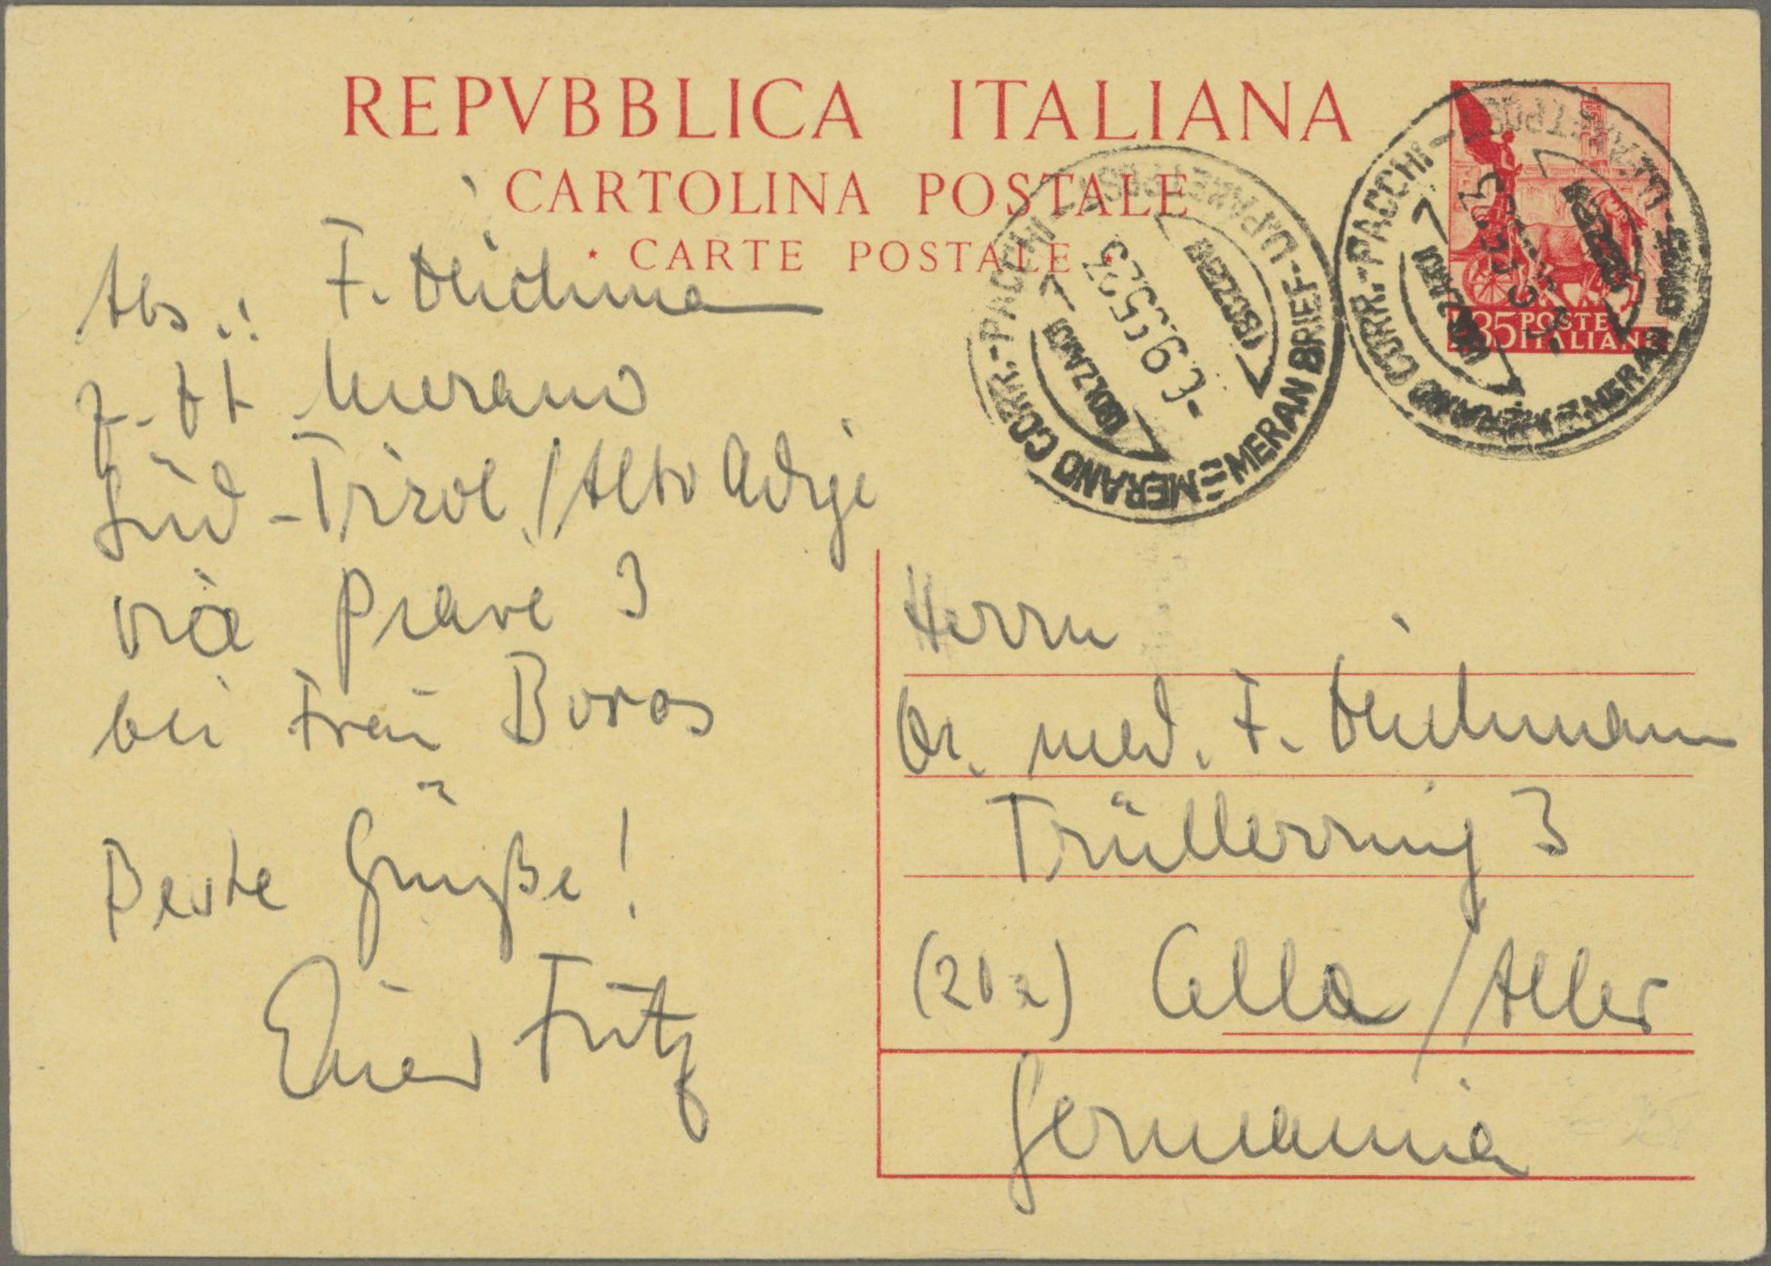 REPVBBLICA ITALIANA
CARTOLINA POSTALE
CARTE POSTALE
35 POSTE
ITALIANE
MERANO CORR.-PACCHI
MERAN BRIEF-U.PAKETPOST
(BOLZANO)
(BOZEN)
-6.9.55.23
MERANO CORR.-PACCHI
MERAN BRIEF-
(BOLZANO)
(BOZEN)
Abs.: F.
z. Zt Merano
Süd-Tirol/Alto Adige
via Piave 3
bei Frau Boros
Beste Grüße!
Euer Fritz
Herrn
Dr. med. F.
Trüllerring 3
(20a) Celle/Aller
Germania